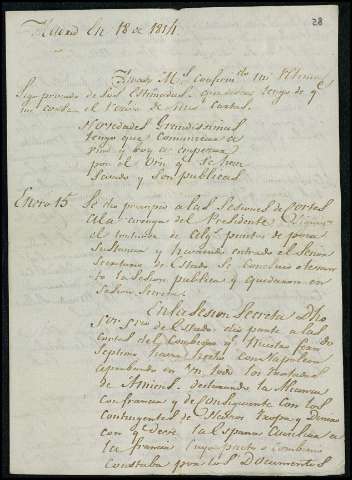 28
Madrid En 18 de 1814
Sigo privado de sus Estimadas, que
el recivo de mis cartas.
Novedades Grandissimas
tengo que comunicar a
Vmd y boy a empezar
por el orn qe se han
y son publicas
Enero 15
Se dio principio a las Sesiones de Cortes
a la arenga del Presidente
el de algs puntos de poca
Sustancia y haviendo entrado el Señor
Secretario de Estado Se
la Sesion publica y quedaron en
Sesion Secreta.
En la Sesion Secreta Dho
Sor Srio de Estado dio parte a las
Cortes del Combenio qe Nuestro Fernando
Septimo havia hecho con Napoleon
aprobando en un todo los tratados
de Amiens, declarando la Alianza
con francia y de Consiguiente con los
contingentes de Navios tropa y Dinero
con qe deve la España Auxiliar a
la francia Cuyo pacto o Combenio
Constaba por los Documentos